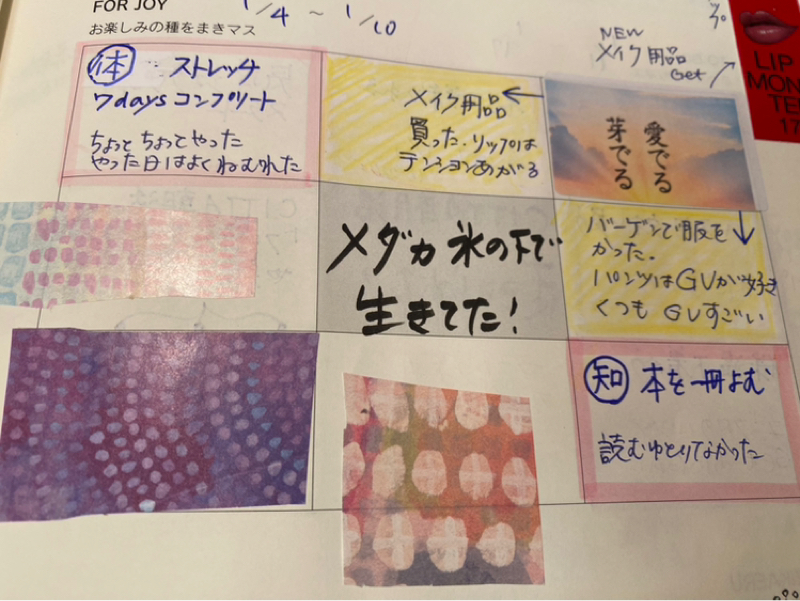 FOR JOY
お楽しみの種をまきマス
1/4 ~ 1/10
NEW
メイク用品
Get
LIP
MON
TE
17
体 ストレッチ
7daysコンプリート
ちょっとちょっとやった
やった日はよくねむれた
メイク用品
買った.リップは
テンションあがる
愛でる
芽でる
メダカ 氷の下で
生きてた!
バーゲンで服を
かった.
パンツはGUが好き
くつも GUすごい
知 本を一冊よむ
読むゆとりなかった